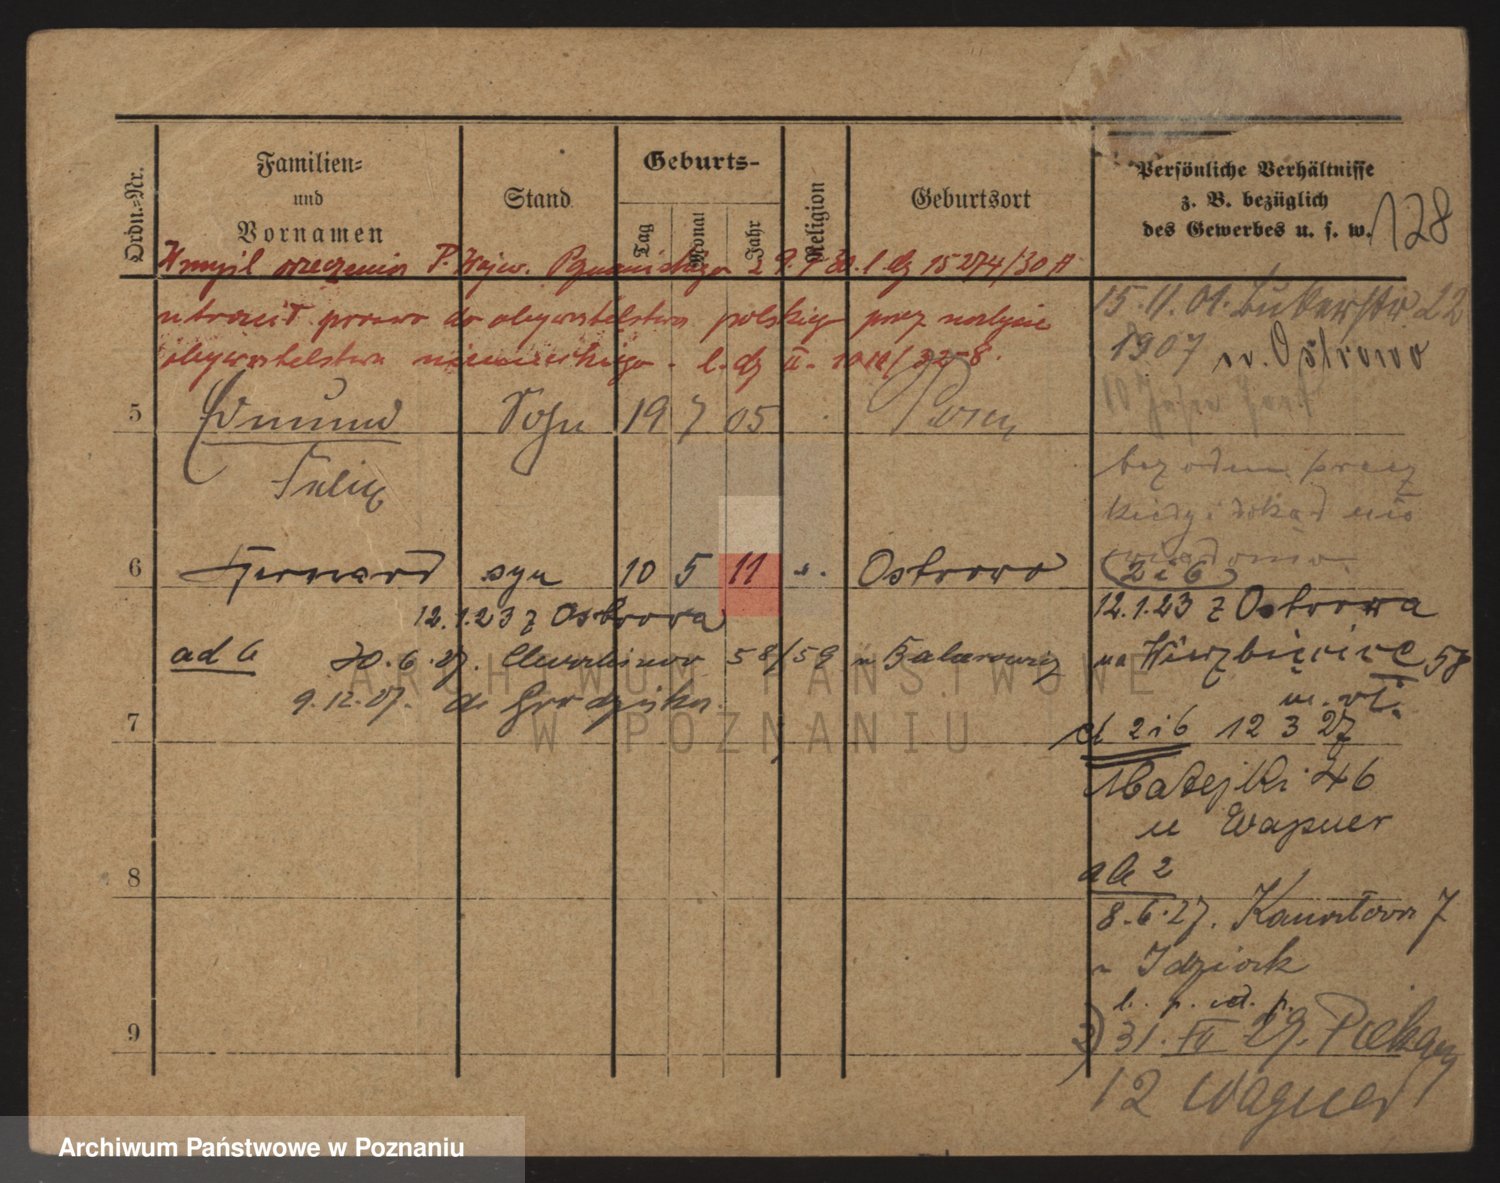 Ordn.-Nr.
Familien-
und
Vornamen
Stand
Geburts-
Tag
Monat
Jahr
Religion
Geburtsort
Persönliche Verhältnisse
z. B. bezüglich
des Gewerbes u. s. w.
128
W myśl orzeczenia P. Wojew. Poznańskiego z 9. 30. l. dz 15274/30
utracił prawo do obywatelstwa polskiego przez nabycie
obywatelstwa niemieckiego. l. dz II.
15.11.01. 22
1907 n. Ostrowo
5
Edmund Sohn 19 7 05 Posen
Felix
kiedy i dokąd nie
wiadomo
6
Bernard syn 10 5 11 Ostrowo
(2 i 6)
12.1.23 z Ostrowa
12.1.23 z Ostrowa
na Wierzbięcice 58
ad 6 30.6.27. 58/59
9.12.07. do Grodziska
7
ad 2 i 6 12 3 27
Matejki 46
u Wagner
8
ad 2
8.6.27. 7
b. p. id. p.
9
2) 31. 29. Piekary
12 Wagner
ARCHIWUM PAŃSTWOWE
W POZNANIU
Archiwum Państwowe w Poznaniu